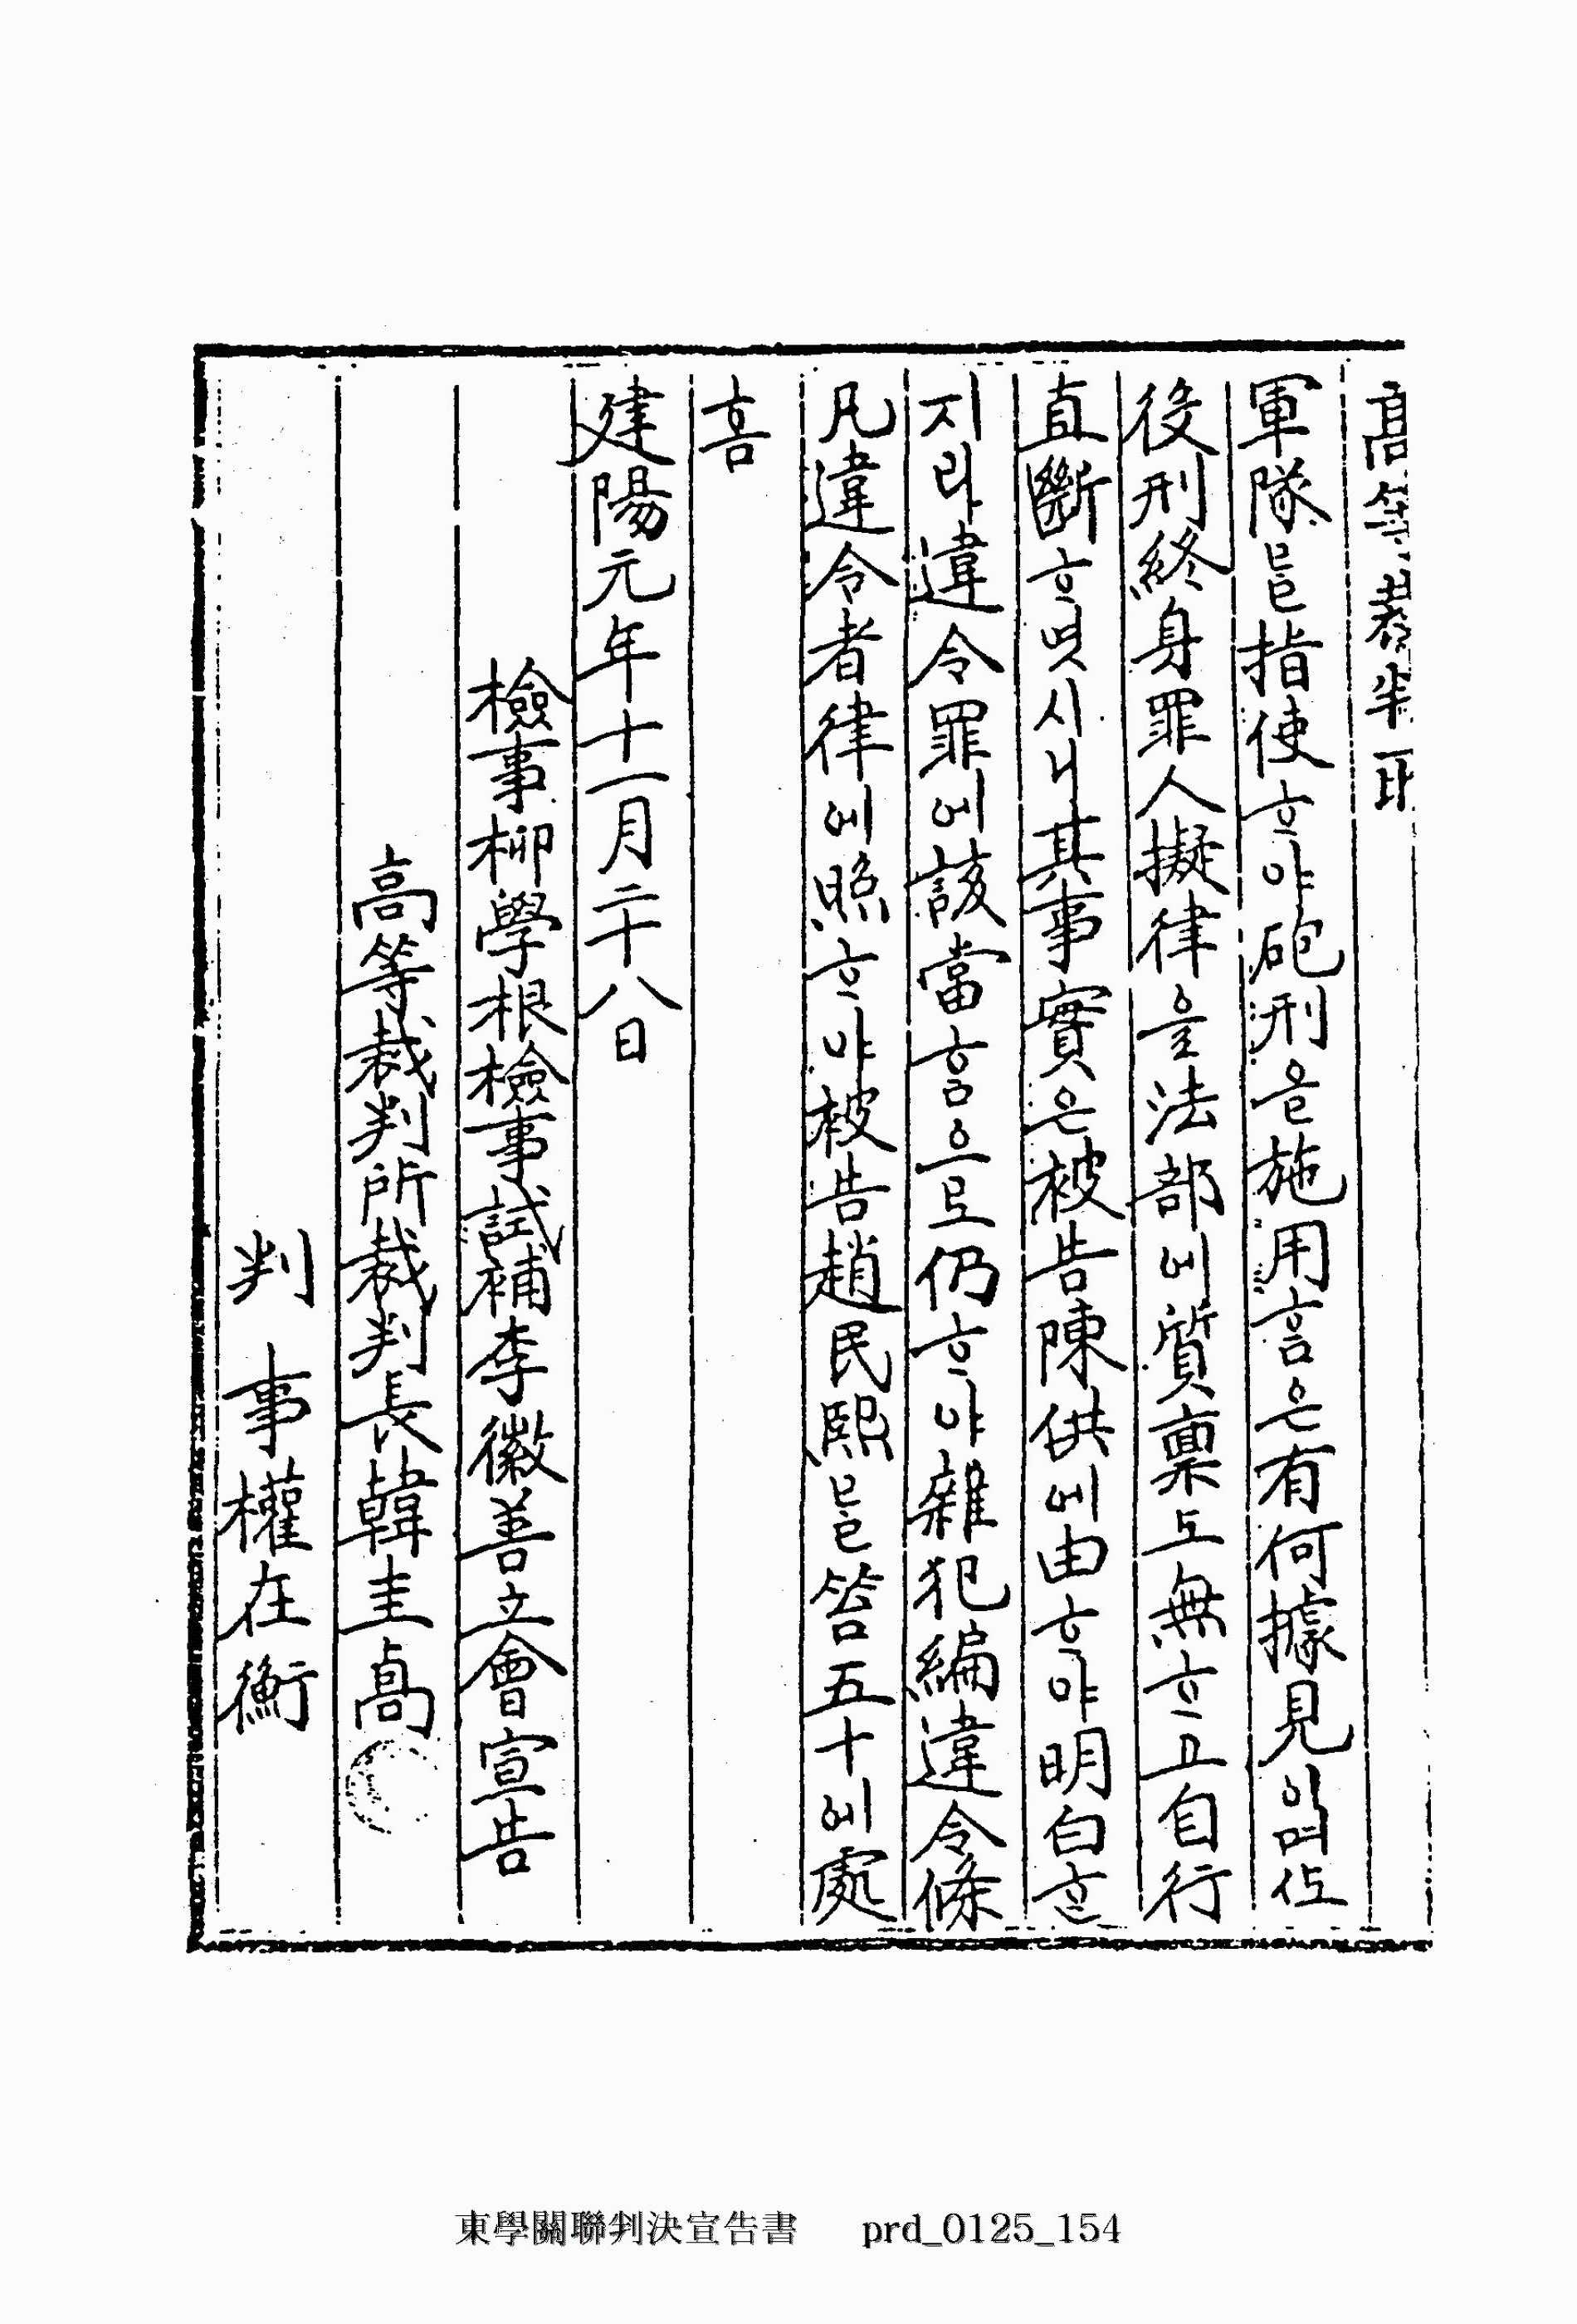 高等裁判所
軍隊를指使ᄒᆞ야砲刑을施用ᄒᆞᆷ은有何據見이며ᄯᅩ
役刑終身罪人擬律을法部에質稟도無ᄒᆞ고自行
直斷ᄒᆞ엿시니其事實은被告陳供에由ᄒᆞ야明白ᄒᆞᆫ
지라違令罪에該當ᄒᆞᆷ으로仍ᄒᆞ야雜犯編違令條
凡違令者律에照ᄒᆞ야被告趙民熙를笞五十에處
ᄒᆞᆷ
建陽元年十一月二十八日
檢事柳學根檢事試補李徽善立會宣告
高等裁判所裁判長韓圭卨
判事權在衡
東學關聯判決宣告書 prd_0125_154